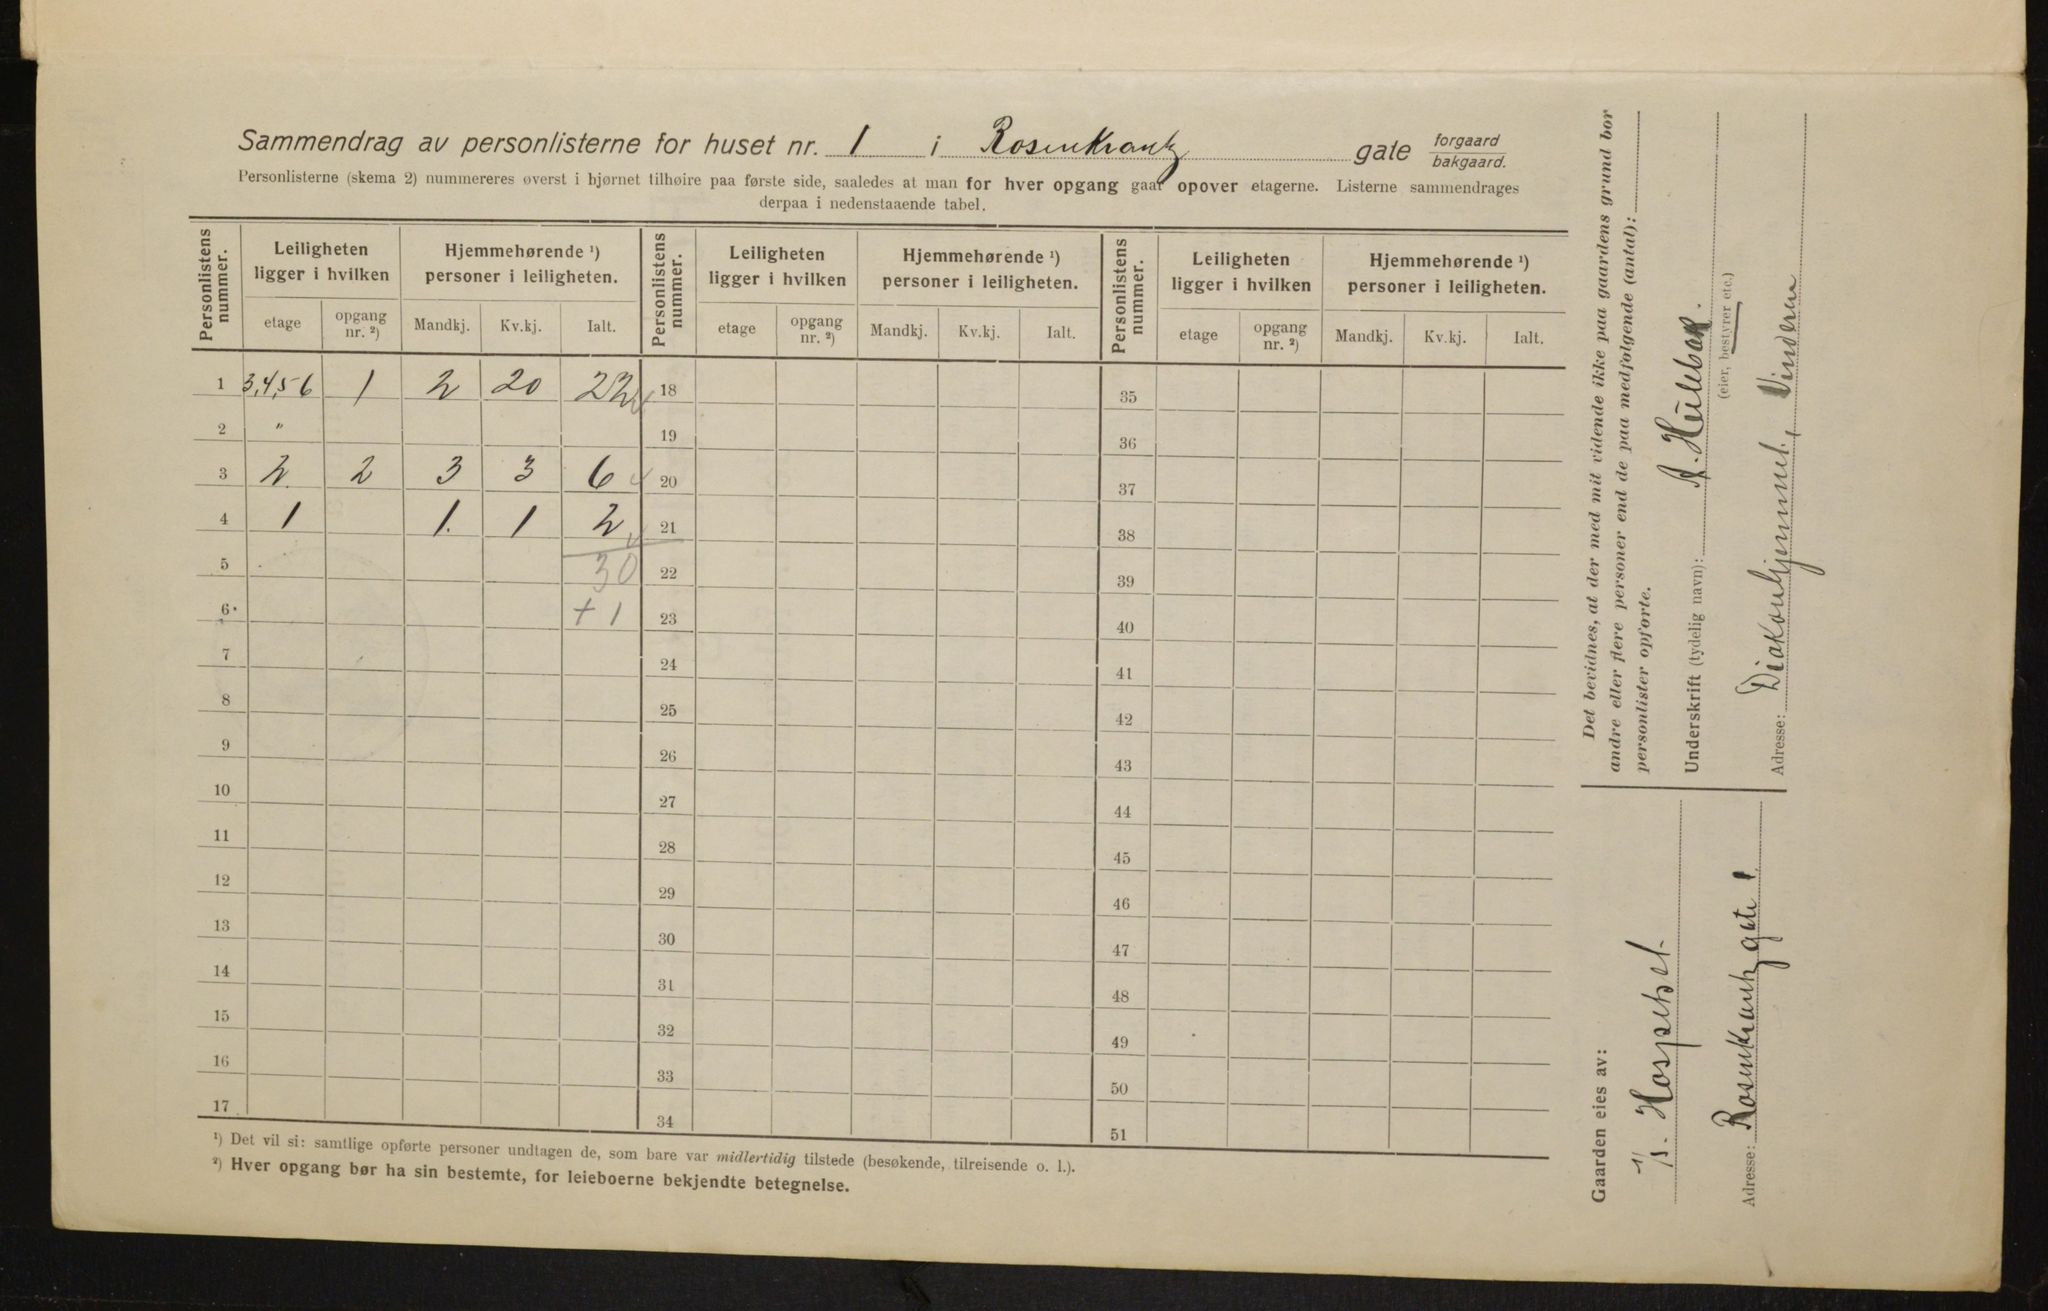 Sammendrag av personlisterne for huset nr. 1 i Rosenkrantz gate forgaard bakgaard.
Personlisterne (skema 2) nummereres øverst i hjørnet tilhøire paa første side, saaledes at man for hver opgang gaar opover etagerne. Listerne sammendrages
derpaa i nedenstaaende tabel.
Personlistens nummer. Leiligheten ligger i hvilken Hjemmehørende ¹) personer i leiligheten. Personlistens nummer. Leiligheten ligger i hvilken Hjemmehørende ¹) personer i leiligheten. Personlistens nummer. Leiligheten ligger i hvilken Hjemmehørende ¹) personer i leiligheten.
etage opgang nr. ²) Mandkj. Kv.kj. Ialt. etage opgang nr. ²) Mandkj. Kv.kj. Ialt. etage opgang nr. ²) Mandkj. Kv.kj. Ialt.
1 3,4,56 1 2 20 22 18 35
2 " 19 36
3 2 2 3 3 6 20 37
4 1 1. 1 2 21 38
5 30 22 39
6 + 1 23 40
7 24 41
8 25 42
9 26 43
10 27 44
11 28 45
12 29 46
13 30 47
14 31 48
15 32 49
16 33 50
17 34 51
¹) Det vil si: samtlige opførte personer undtagen de, som bare var midlertidig tilstede (besøkende, tilreisende o. l.).
²) Hver opgang bør ha sin bestemte, for leieboerne bekjendte betegnelse.
Det bevidnes, at der med mit vidende ikke paa gaardens grund bor
andre eller flere personer end de paa medfølgende (antal):
personlister opførte.
Underskrift (tydelig navn): A. Hillebak.
(eier, bestyrer etc.)
Adresse: Diakonhjemmet, Vinderen
Gaarden eies av:
Hospitset.
Adresse: Rosenkrantz gate 1